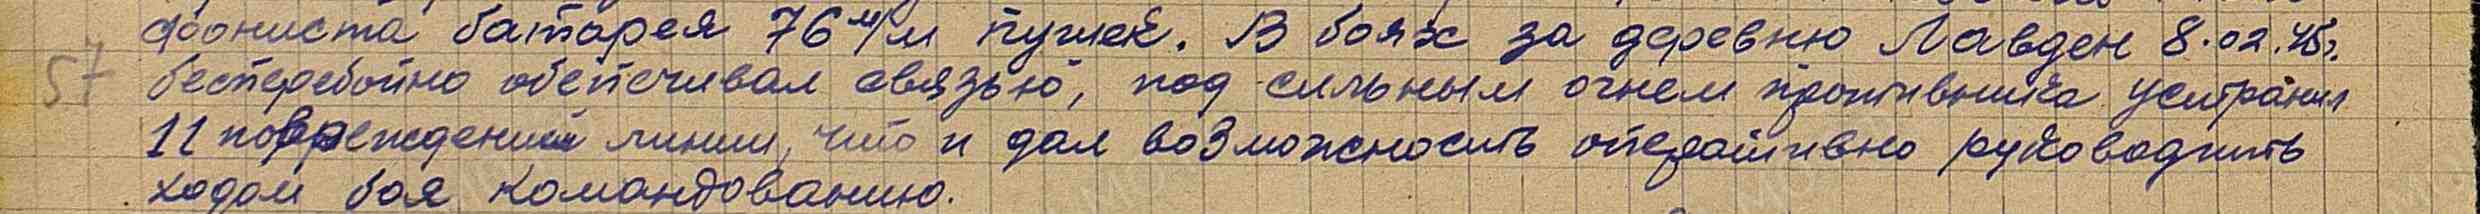 фониста батарея 76 м/м пушек. В боях за деревню Лавден 8.02.45г.
57 бесперебойно обепечивал связью, под сильным огнем противника устранил
11 повреждений линии, что и дал возможность оперативно руководить
ходом боя командованию.